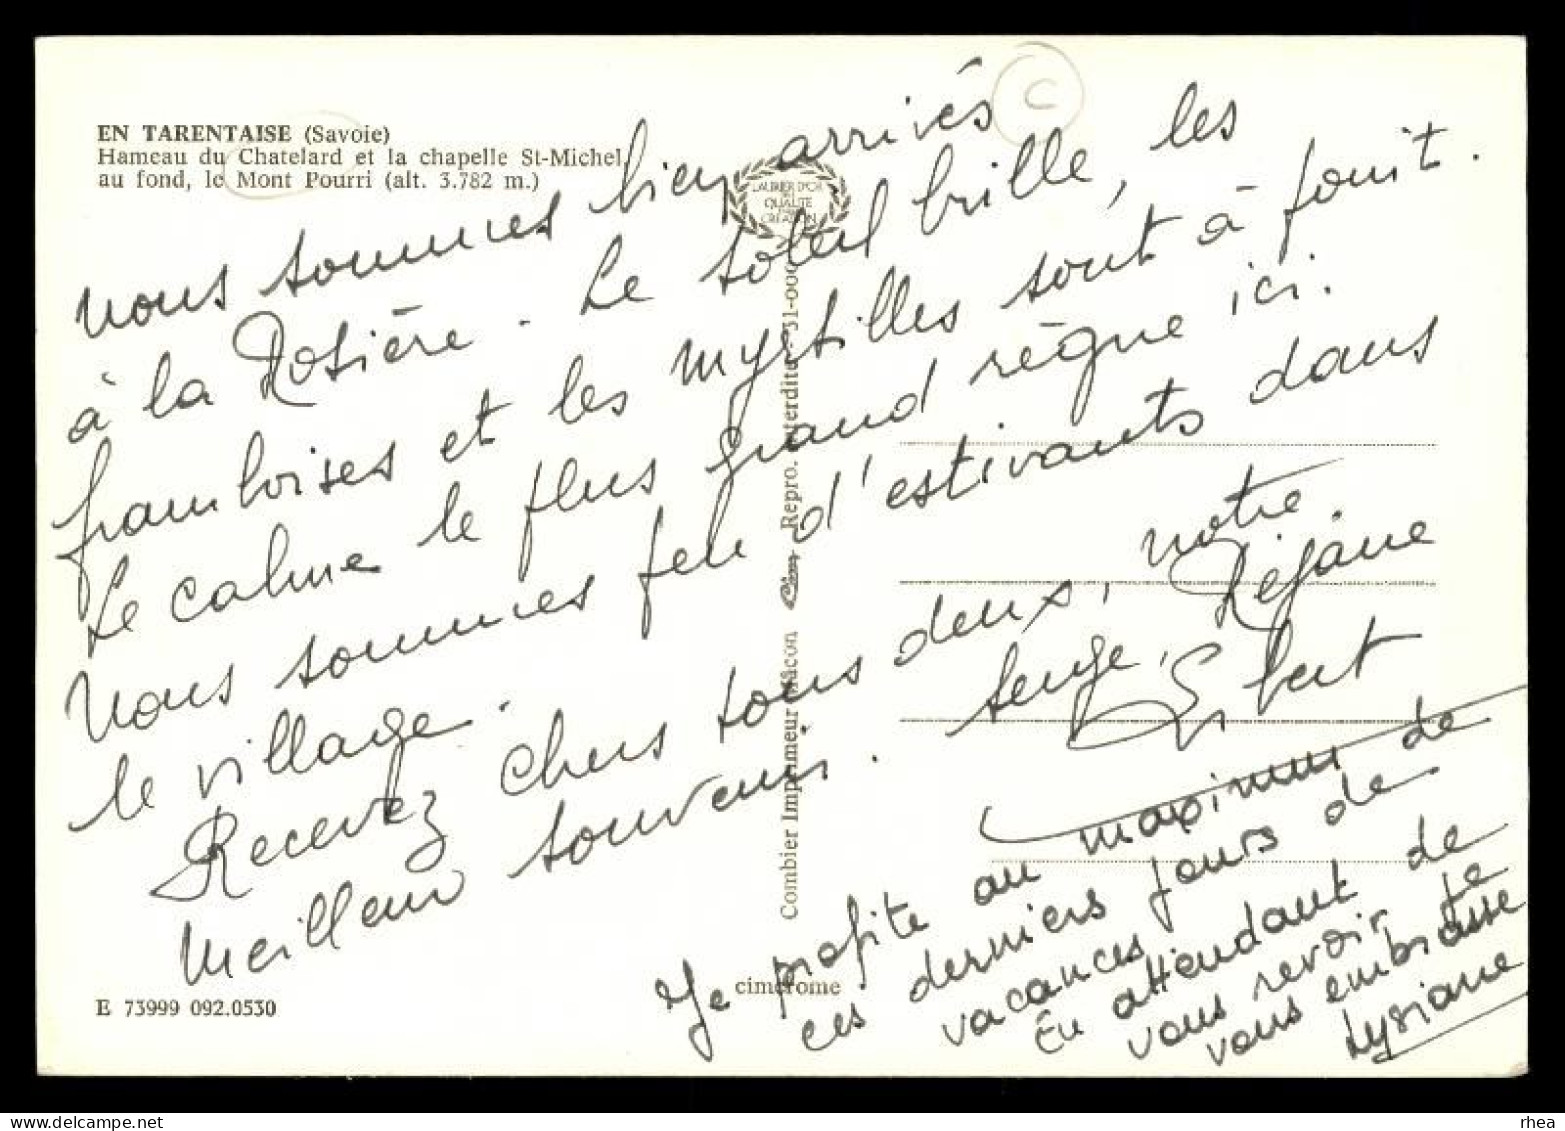 EN TARENTAISE (Savoie)
Hameau du Chatelard et la chapelle St-Michel,
au fond, le Mont Pourri (alt. 3.782 m.)
C
LAURIER D'OR
QUALITÉ
CRÉATION
Nous sommes bien arrivés
à la Rosière. Le soleil brille, les
framboises et les myrtilles sont à fruit.
Le calme le plus grand règne ici.
Nous sommes peu d'estivants dans
le village.
Recevez chers tous deux, notre
meilleur souvenir.
Réjane
Serge,
Je profite au maximum de
ces derniers jours de
vacances
En attendant de
vous revoir je
vous embrasse
Lysiane
Combier Imprimeur Mâcon Cim Repro. interdite - 31-000
cimcrome
E 73999 092.0530
www.delcampe.net
rhea